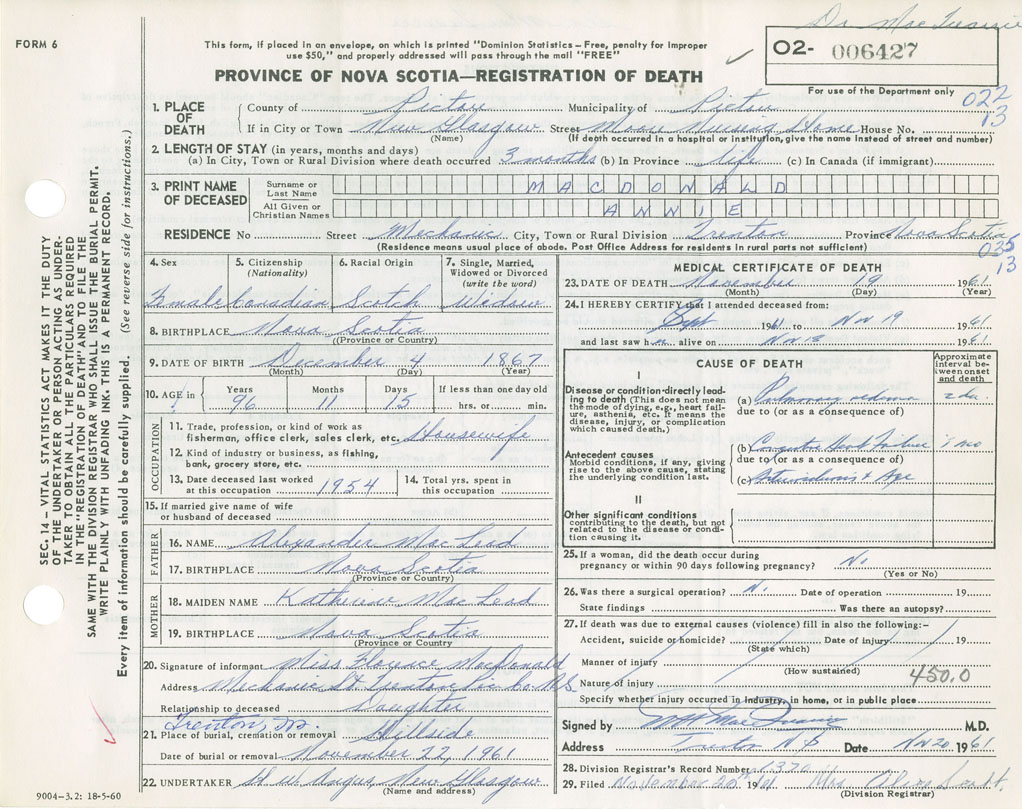 Dr. Mac
FORM 6
This form, if placed in an envelope, on which is printed "Dominion Statistics – Free, penalty for improper
use $50," and properly addressed will pass through the mail "FREE"
PROVINCE OF NOVA SCOTIA—REGISTRATION OF DEATH
02- 006427
For use of the Department only
022
13
1. PLACE OF DEATH
County of Pictou Municipality of Pictou
If in City or Town New Glasgow Street Nursing Home House No.
(Name) (If death occurred in a hospital or institution, give the name instead of street and number)
2. LENGTH OF STAY (in years, months and days)
(a) In City, Town or Rural Division where death occurred 3 months (b) In Province life (c) In Canada (if immigrant)
3. PRINT NAME OF DECEASED
Surname or Last Name MACDONALD
All Given or Christian Names ANNIE
RESIDENCE No Street Mechanic City, Town or Rural Division Trenton Province Nova Scotia
(Residence means usual place of abode. Post Office Address for residents in rural parts not sufficient)
035
13
4. Sex
Female
5. Citizenship
(Nationality)
Canadian
6. Racial Origin
Scotch
7. Single, Married,
Widowed or Divorced
(write the word)
Widow
8. BIRTHPLACE Nova Scotia
(Province or Country)
9. DATE OF BIRTH December 4 1867
(Month) (Day) (Year)
10. AGE in
Years Months Days If less than one day old
96 11 15 hrs. or min.
OCCUPATION
11. Trade, profession, or kind of work as
fisherman, office clerk, sales clerk, etc. Housewife
12. Kind of industry or business, as fishing,
bank, grocery store, etc.
13. Date deceased last worked
at this occupation 1954
14. Total yrs. spent in
this occupation
15. If married give name of wife
or husband of deceased
FATHER
16. NAME Alexander MacLeod
17. BIRTHPLACE Nova Scotia
(Province or Country)
MOTHER
18. MAIDEN NAME Katherine MacLeod
19. BIRTHPLACE Nova Scotia
(Province or Country)
20. Signature of informant Miss Florence MacDonald
Address Mechanic St Trenton Pic Co N.S.
Relationship to deceased Daughter
Trenton,
21. Place of burial, cremation or removal Hillside
Date of burial or removal November 22, 1961
22. UNDERTAKER Angus, New Glasgow
(Name and address)
9004-3.2: 18-5-60
MEDICAL CERTIFICATE OF DEATH
23. DATE OF DEATH November 19 1961
(Month) (Day) (Year)
24. I HEREBY CERTIFY that I attended deceased from:
Sept 1961 to Nov 19 1961
and last saw h er alive on Nov 18 1961
CAUSE OF DEATH
Approximate
interval between onset
and death
I
Disease or condition directly leading to death (This does not mean
the mode of dying, e.g., heart failure, asthenia, etc. It means the
disease, injury, or complication
which caused death.)
(a) Pulmonary oedema 2 da.
due to (or as a consequence of)
Antecedent causes
Morbid conditions, if any, giving
rise to the above cause, stating
the underlying condition last.
(b) Congestive Heart Failure 1 mo
due to (or as a consequence of)
(c) Arteriosclerosis & Age
II
Other significant conditions
contributing to the death, but not
related to the disease or condition causing it.
25. If a woman, did the death occur during
pregnancy or within 90 days following pregnancy? No
(Yes or No)
26. Was there a surgical operation? No. Date of operation 19
State findings Was there an autopsy?
27. If death was due to external causes (violence) fill in also the following:-
Accident, suicide or homicide? Date of injury 19
(State which)
Manner of injury
(How sustained)
Nature of injury 450.0
Specify whether injury occurred in industry, in home, or in public place
Signed by M.D.
Address Trenton N S Date Nov 20 1961
28. Division Registrar's Record Number
29. Filed November 20th 1961 Mrs.
(Division Registrar)
SEC. 14 – VITAL STATISTICS ACT MAKES IT THE DUTY
OF THE UNDERTAKER OR PERSON ACTING AS UNDERTAKER TO OBTAIN ALL THE PARTICULARS REQUIRED
IN THE "REGISTRATION OF DEATH" AND TO FILE THE
SAME WITH THE DIVISION REGISTRAR WHO SHALL ISSUE THE BURIAL PERMIT.
WRITE PLAINLY WITH UNFADING INK. THIS IS A PERMANENT RECORD.
Every item of information should be carefully supplied. (See reverse side for instructions.)